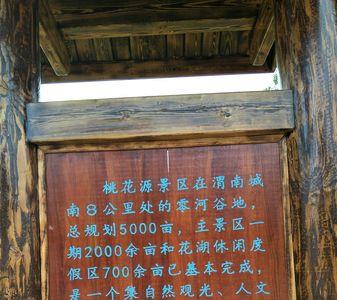 桃花源景区在渭南城
南8公里处的零河谷地，
总规划5000亩，主景区一
期2000余亩和花湖休闲度
假区700余亩已基本完成，
是一个集自然观光、人文